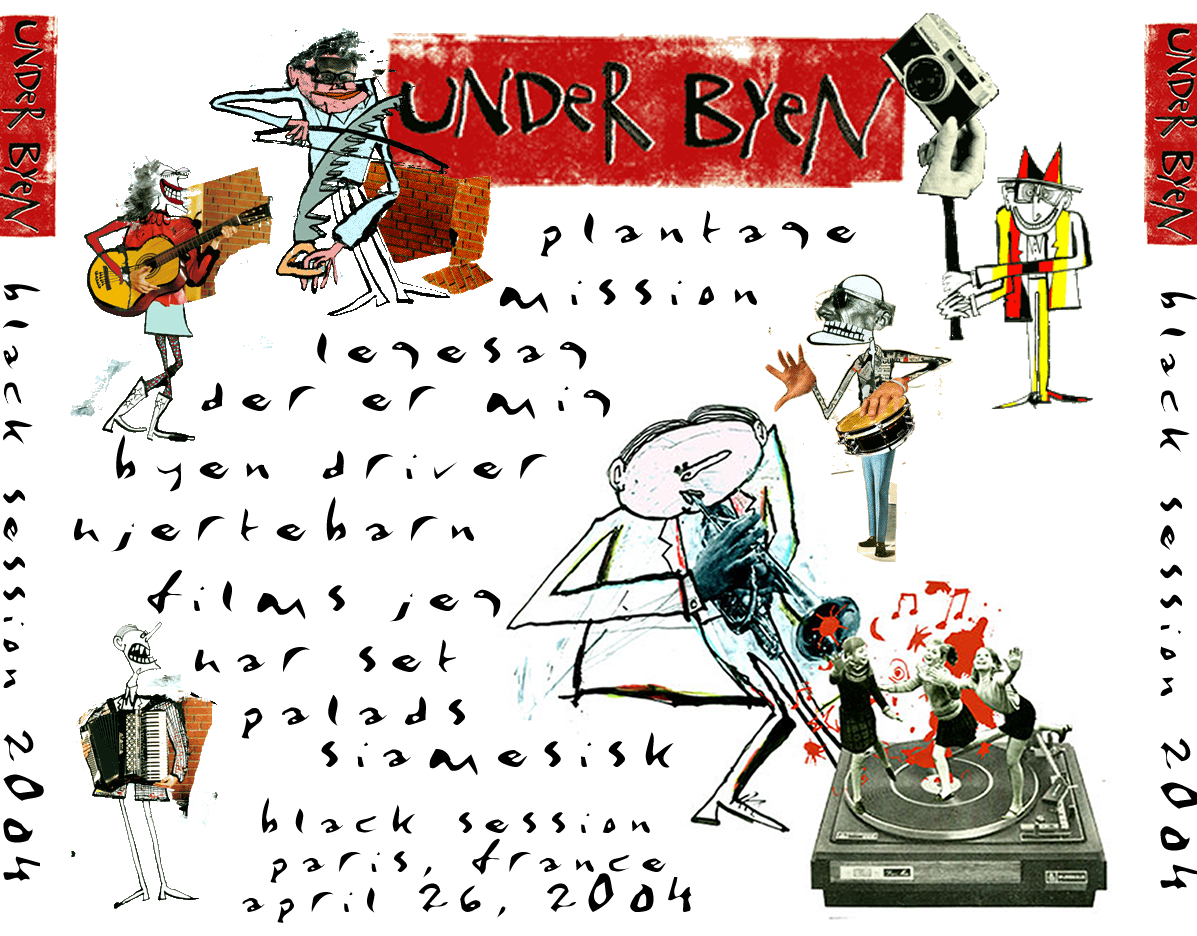 UNDER BYEN
black session 2004
UNDER BYEN
plantage
mission
legesag
der er mig
byen driver
hjertebarn
films jeg
har set
palads
siamesisk
black session
paris, france
april 26, 2004
UNDER BYEN
black session 2004